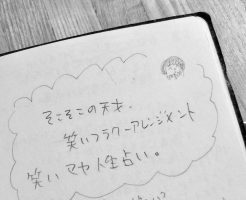 そこそこの天才、
笑いフラワーアレンジメント
笑い マヤ人生占い。